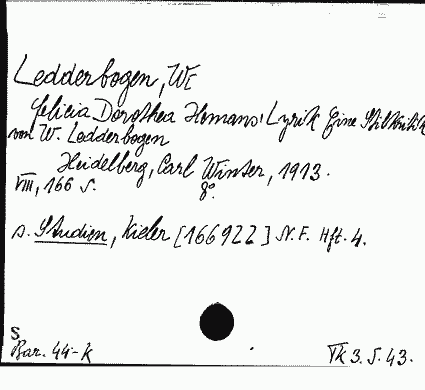 Ledderbogen, W.
Felicia Dorothea Hemans' Lyrik Eine Stilkritik
von W. Ledderbogen
Heidelberg, Carl Winter, 1913.
VIII, 166 S. 8°.
s. Studien, Kieler [166922] N. F. Hft. 4.
S
Bar. 44-K
Tk 3. S. 43.